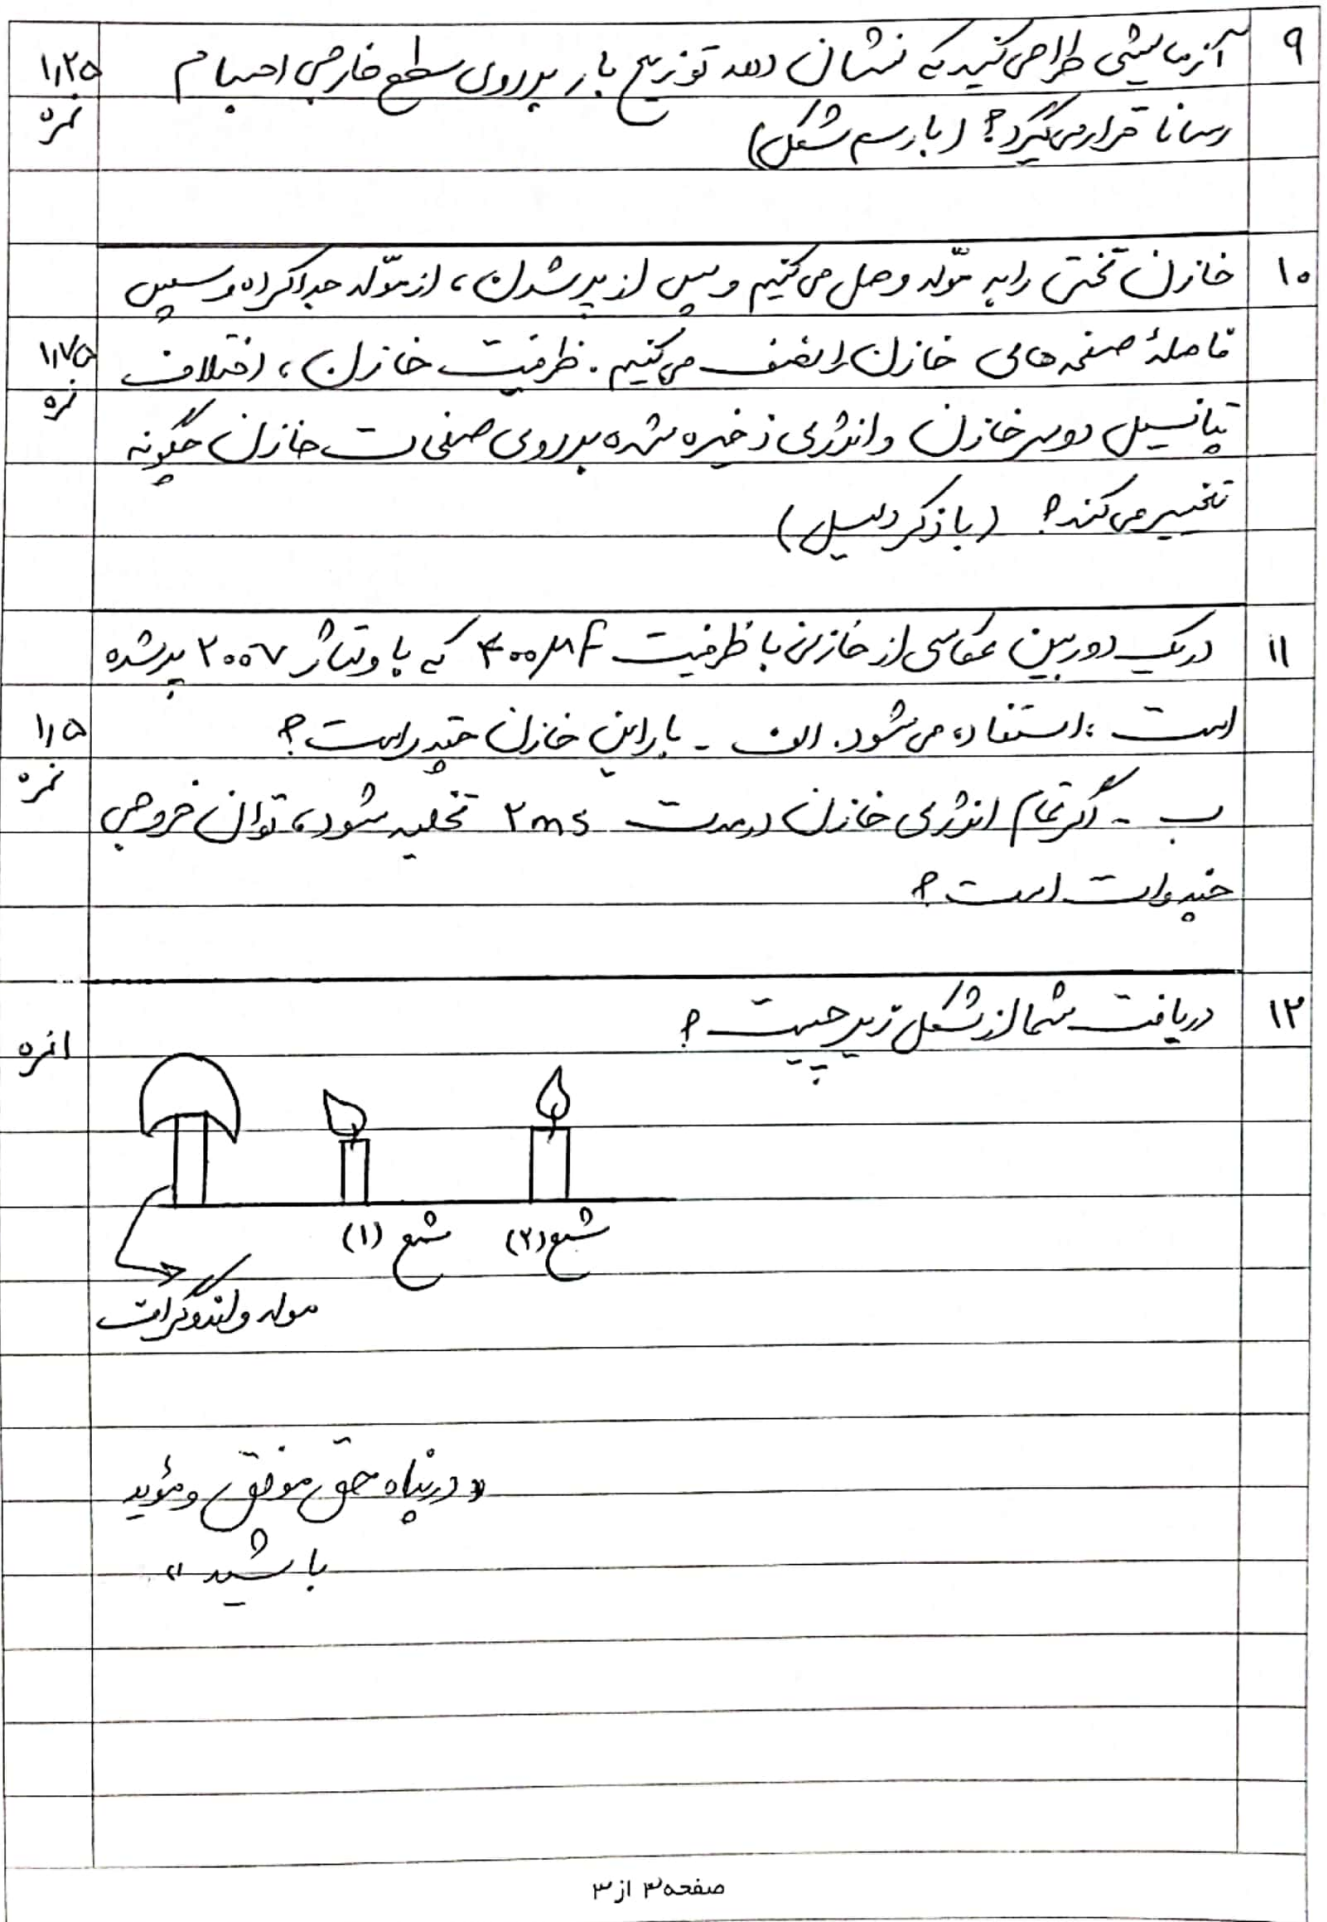 ۹ آزمایشی طراحی کنید که نشان دهد توزیع بار بر روی سطح خارجی اجسام ۱٫۲۵
رسانا قرار می‌گیرد؟ (با رسم شکل) نمره
۱۰ خازن تختی را به مولّد وصل می‌کنیم و پس از پر شدن، از مولّد جدا کرده و سپس
فاصلهٔ صفحه‌های خازن را نصف می‌کنیم. ظرفیت خازن، اختلاف ۱٫۷۵
پتانسیل دو سر خازن و انرژی ذخیره شده بر روی صفحات خازن چگونه نمره
تغییر می‌کند؟ (با ذکر دلیل)
۱۱ در یک دوربین عکاسی از خازنی با ظرفیت ۴۰۰μF که با ولتاژ ۲۰۰V پر شده
است، استفاده می‌شود. الف - بار این خازن چقدر است؟ ۱٫۵
ب - اگر تمام انرژی خازن در مدت ۲ms تخلیه شود، توان خروجی نمره
چند وات است؟
۱۲ دریافت شما از شکل زیر چیست؟ ۱ نمره
شمع (۲) شمع (۱)
مولد واندوگراف
«در پناه حق موفق و مؤید
باشید»
صفحه ۳ از ۳